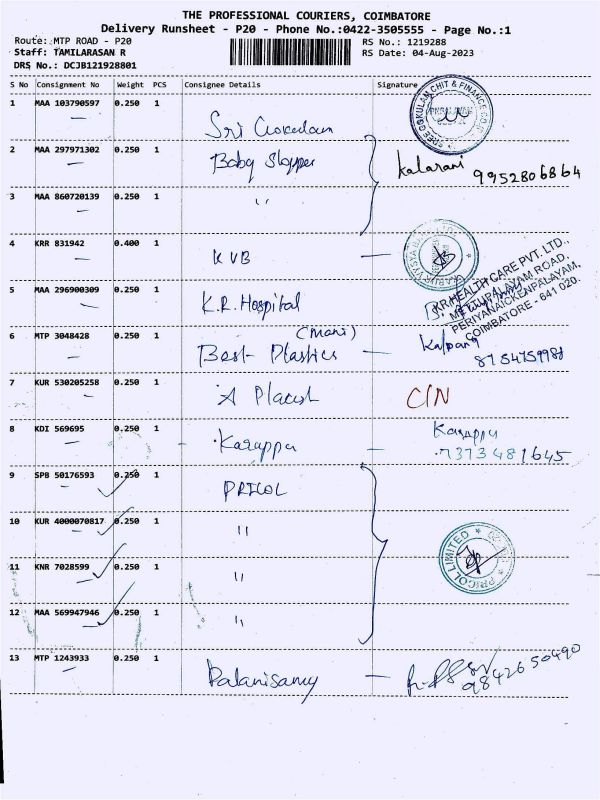 THE PROFESSIONAL COURIERS, COIMBATORE
Delivery Runsheet - P20 - Phone No.:0422-3505555 - Page No.:1
Route: MTP ROAD - P20
RS No.: 1219288
Staff: TAMILARASAN R
RS Date: 04-Aug-2023
DRS No.: DCJB121928801
S No Consignment No Weight PCS Consignee Details Signature
1 MAA 103790597 0.250 1
Sri Gokulam
2 MAA 297971302 0.250 1 Baby Shopper Kalarani 9952806864
3 MAA 860720139 0.250 1 "
4 KRR 831942 0.400 1 KVB
5 MAA 296900309 0.250 1 K.R. Hospital
KR HEALTH CARE PVT. LTD.,
METTUPALAYAM ROAD,
PERIYANAICKENPALAYAM,
COIMBATORE - 641 020.
6 MTP 3048428 0.250 1 (Mani)
Best Plastics Kalpana
8754759981
7 KUR 530205258 0.250 1 A Placest C/N
8 KDI 569695 0.250 1 Karappu Karappu
7373481645
9 SPB 50176593 0.250 1 PRICOL
10 KUR 4000070817 0.250 1 "
PRICOL LIMITED
11 KNR 7028599 0.250 1 "
12 MAA 569947946 0.250 1 "
13 MTP 1243933 0.250 1 Palanisamy
9842650490